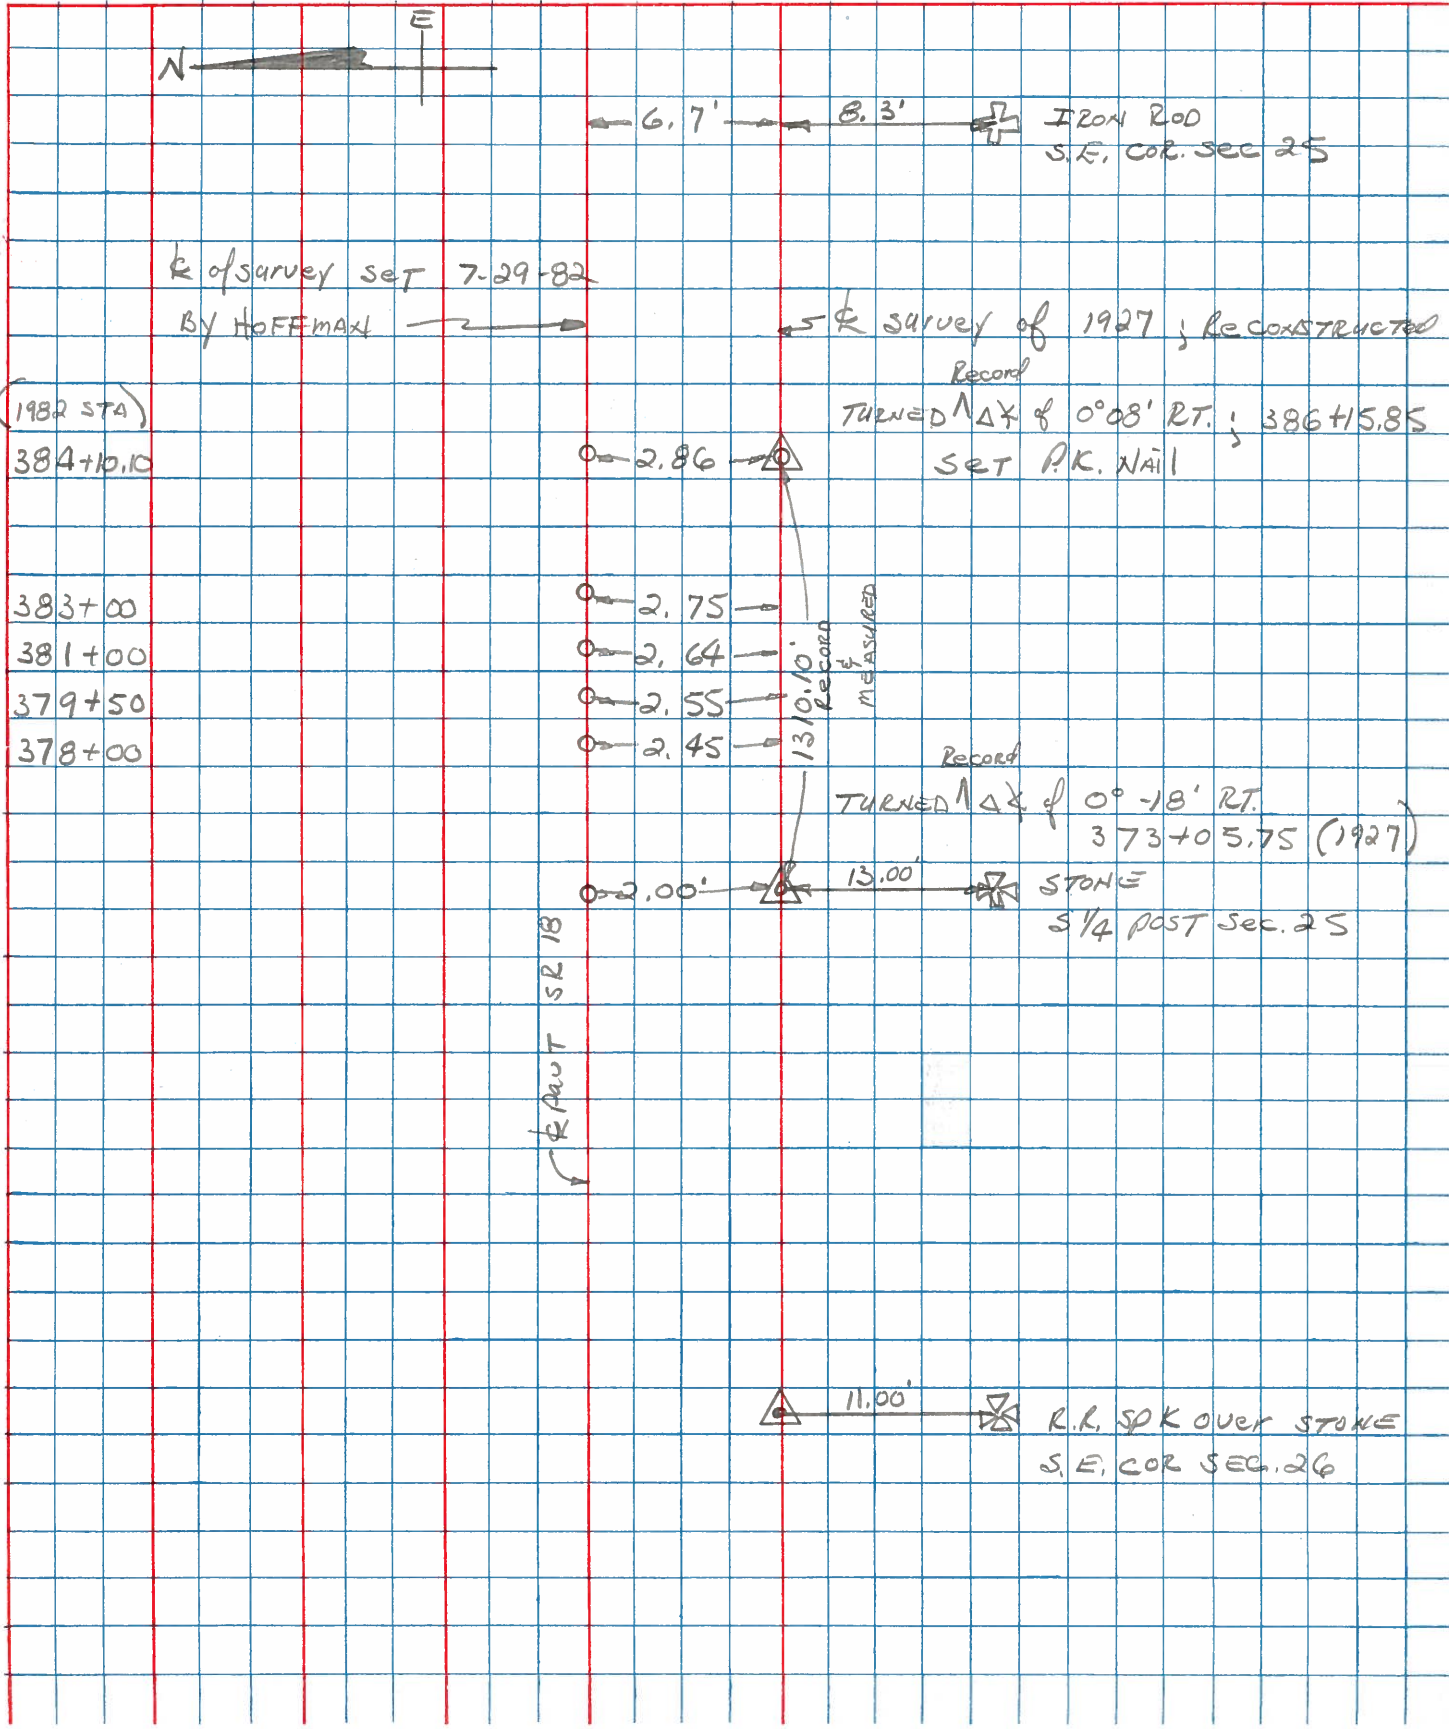 E
N
6.7' 8.3' IRON ROD
S.E. COR. Sec 25
℄ of survey SeT 7-29-82
By HOFFMAN
℄ survey of 1927 ; ReCONSTRUCTED
Record
(1982 STA)
TURNED ^ Δ∡ of 0°08' RT. ; 386+15.85
384+10.10 2.86 SeT P.K. NAil
383+00 2.75
381+00 2.64
379+50 2.55
378+00 2.45
1310.10'
Record
&
MEASURED
Record
TURNED ^ Δ∡ of 0°-18' RT.
373+05.75 (1927)
2.00' 13.00' STONE
S 1/4 POST Sec. 25
℄ PavT SR 18
11.00' R.R. SPK Over STONE
S.E. COR SEC. 26